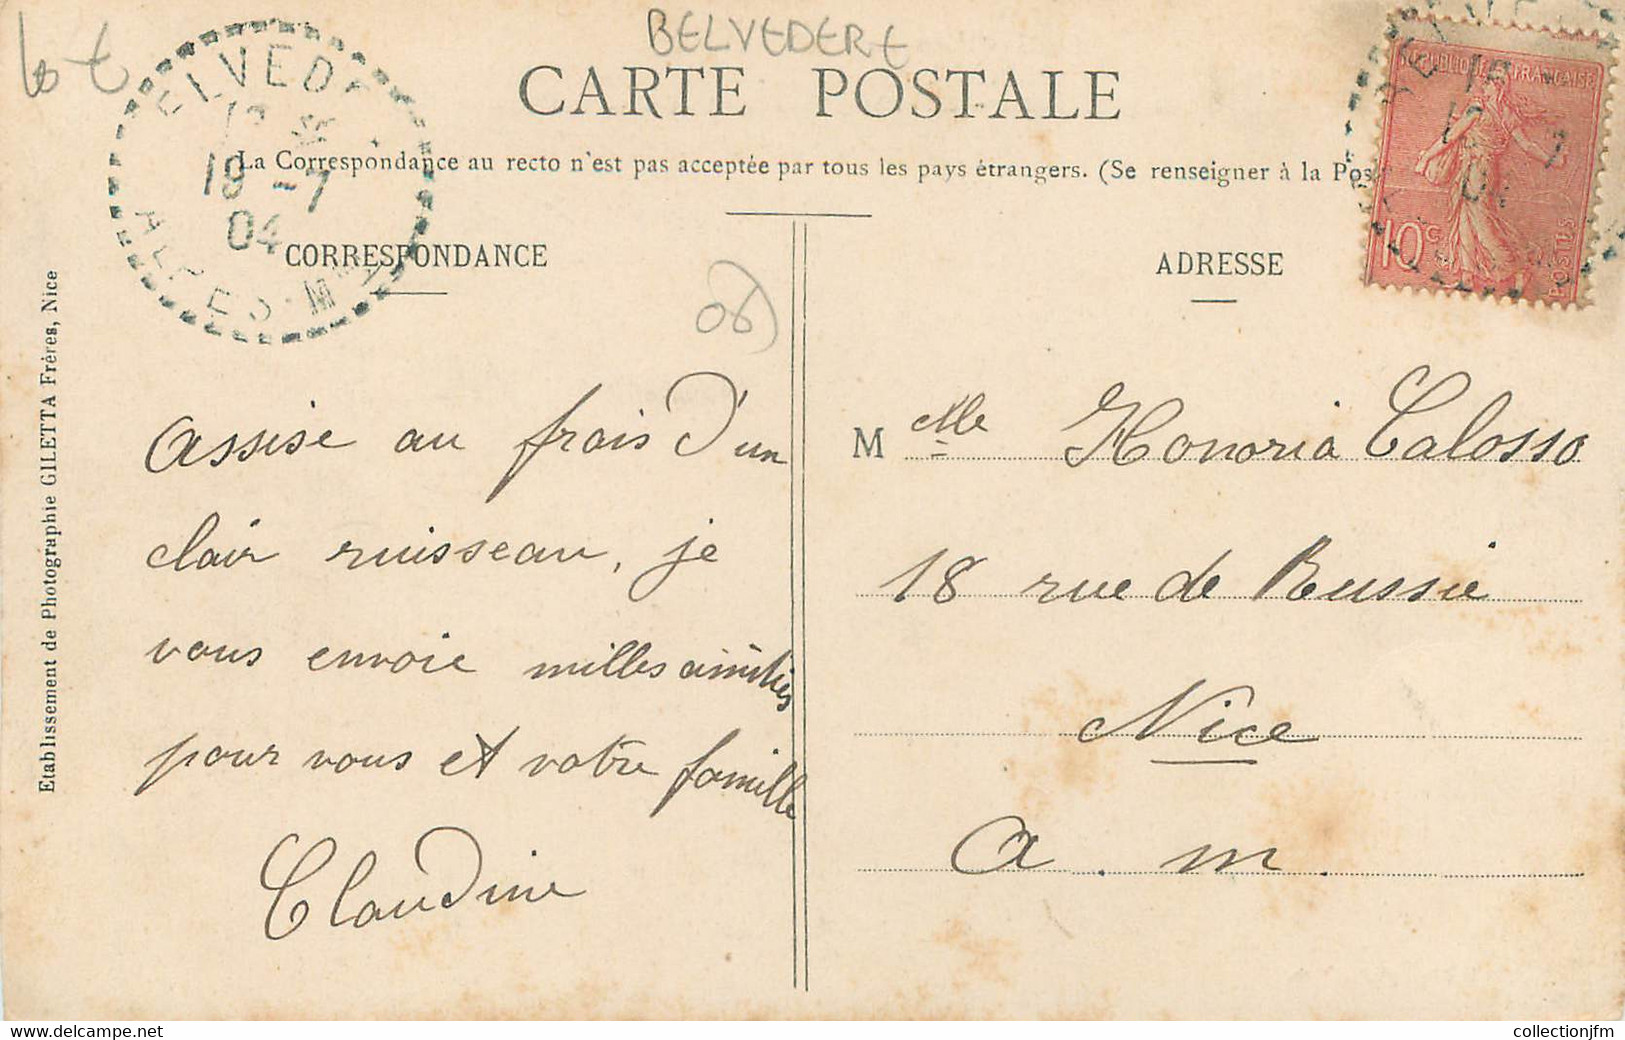 BELVEDERE
CARTE POSTALE
La Correspondance au recto n'est pas acceptée par tous les pays étrangers. (Se renseigner à la Pos
ELVEDE
19 -7
04
ALPES-Mmes
REPUBLIQUE FRANÇAISE
10c
POSTES
CORRESPONDANCE
ADRESSE
06
Assise au frais d'un
clair ruisseau, je
vous envoie milles amitiés
pour vous et votre famille
Claudine
M elle Honoria Calosso
18 rue de Russie
Nice
A. m.
Etablissement de Photographie GILETTA Frères, Nice
collectionjfm